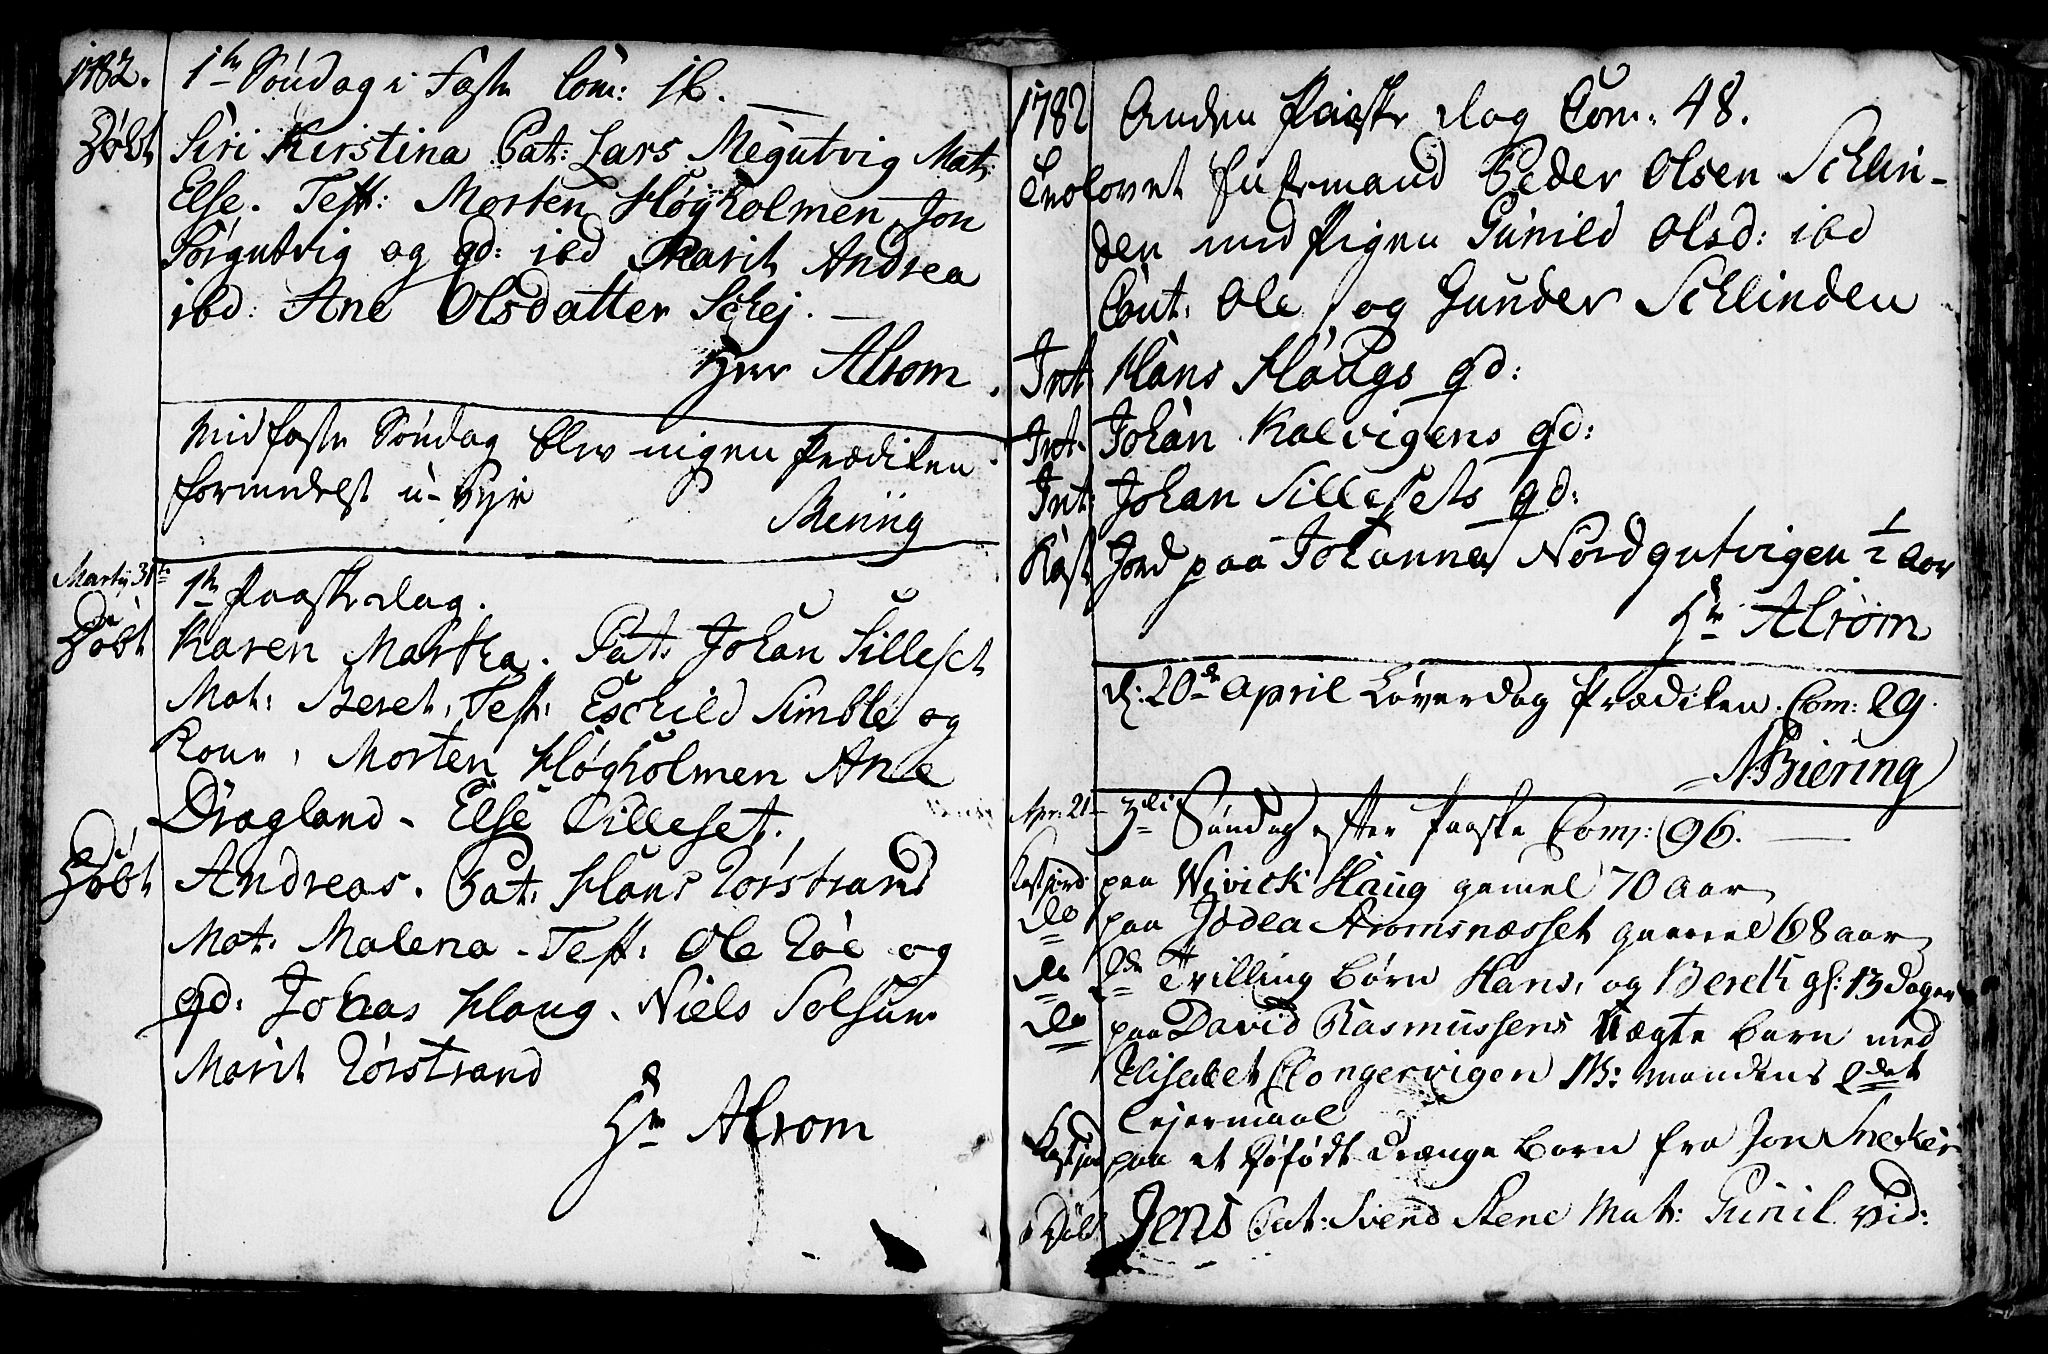 1782. 1te Søndag i Faste Com: 16.
Døbt Siri Kirstina Pat: Lars Megutvig Mat:
Else. Test: Morten Høgholmen, Jon
Sørgutvig og qd: ibd Marit Andrea
ibd: Ane Olsdatter Schej.
Herr Alrom
Midfaste Søndag blev ingen Prædiken
formedelst u-Vejr
Martij 31te 1te Paaske dag.
Døbt Karen Martha. Pat: Johan Silleset
Mat: Beret. Test: Eschild Simble og
Kone, Morten Høgholmen Ane
Dragland - Else Silleset.
Døbt Andreas. Pat: Hans Torstrand
Mat: Malena - Test: Ole Røe og
qd: Johas Haug. Niels Solsum
Marit Torstrand
Hr Alrom
1782 Anden Paaske dag Com: 48.
Trolovet Enkemand Peder Olsen Schlin-
den med Pigen Gunild Olsd: ibd
Caut. Ole og Gunder Schlinden
Int Hans Haugs qd:
Int. Johan Kalvigens qd:
Int Johan Sillesets qd:
Kast Jord paa Johanna Nordgutvigen 1/2 Aar
Hr Alrom
d: 20de April Løverdag Prædiken. Com: 29.
N Biering
Apr: 21 3die Søndag efter Paaske Com: 96.
Kast jord paa Wivick Haug gamel 70 Aar
do paa Jødea Aromsnæsset gamel 68 aar
do 2de Tvilling børn Hans, og Bereth gl: 13 dager
do paa David Rasmussens Uægte barn med
Elisabet Clongervigen NB: mandens 2det
Lejermaal
Kast jord paa et Døfødt Drænge barn fra Jon Snecker
Døbt Jens Pat: Svend Stene Mat: Gunil vid: